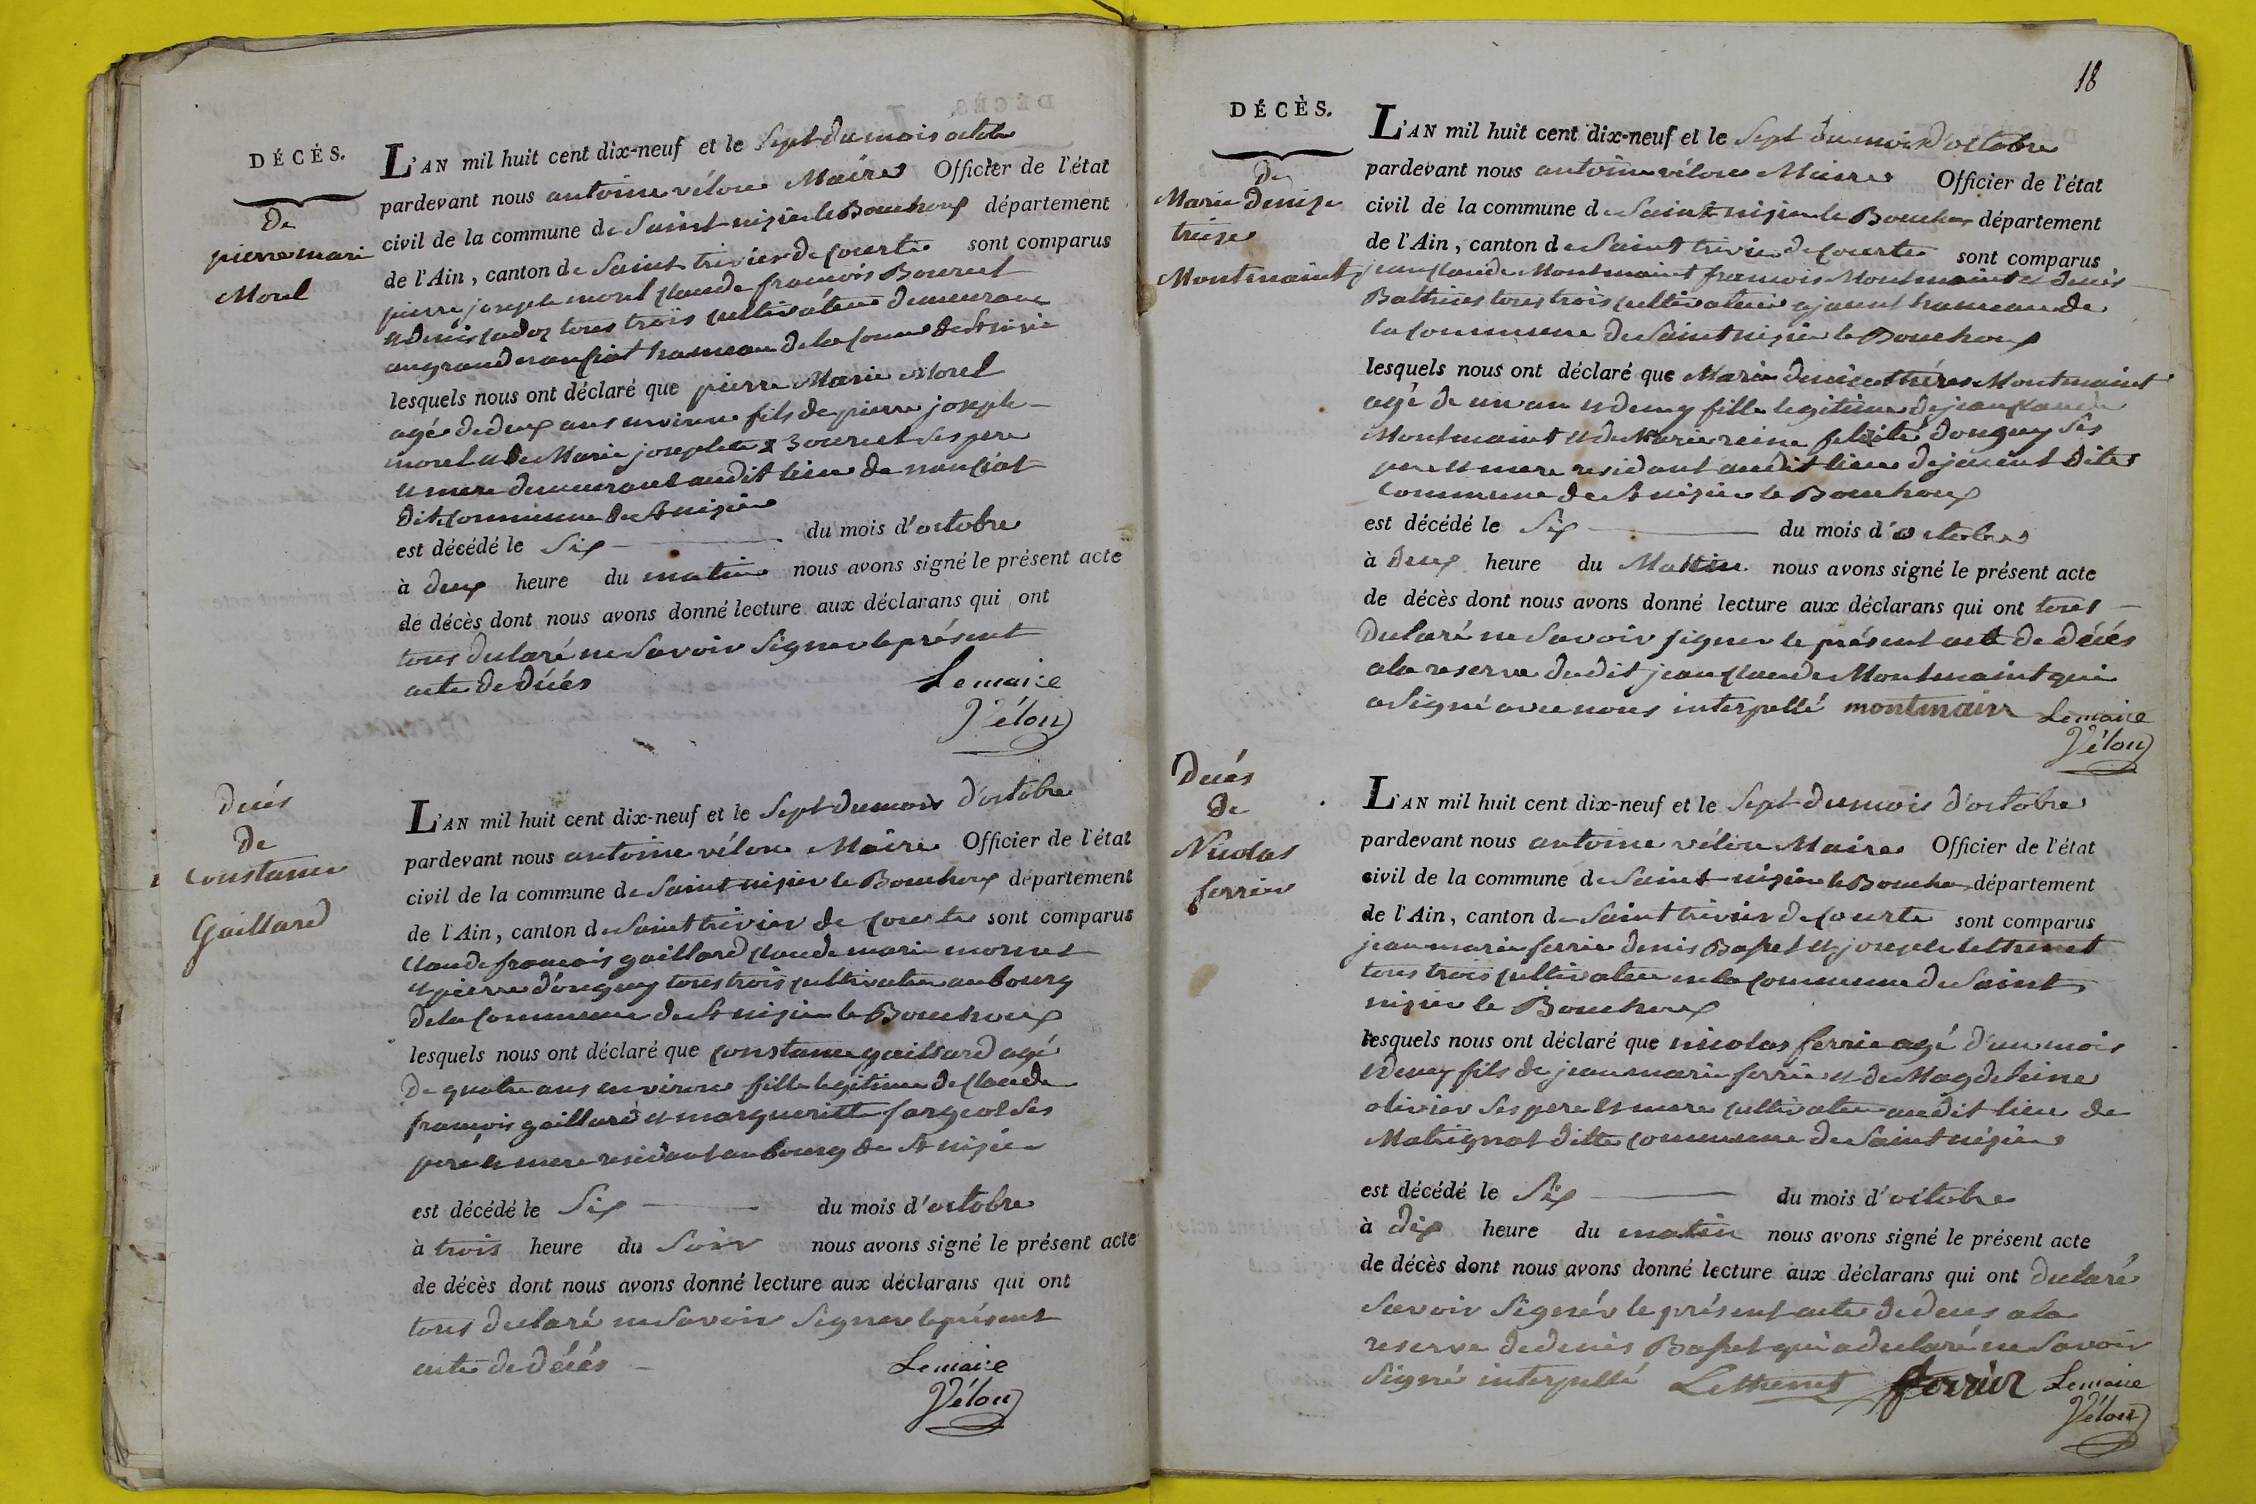 DÉCÈS.
De
pierre mari
Morel
L'AN mil huit cent dix-neuf et le Sept du mois octob
pardevant nous antoine vélon Maire Officier de l'état
civil de la commune de Saint nizier le Bouchoux département
de l'Ain, canton de Saint trivier de Courte sont comparus
pierre joseph morel Claude françois Bourcet
et denis tous trois cultivateur demeurant
au grand nanciat hameau de la Comne de St nizie
lesquels nous ont déclaré que pierre Marie Morel
agé de deux ans environ fils de pierre joseph
morel et de Marie josephte Bourcet Ses pere
et mere demeurant audit lieu de nanciat
Dite Commune de St nizier
est décédé le Six du mois d'octobre
à deux heure du matin nous avons signé le présent acte
de décès dont nous avons donné lecture aux déclarans qui ont
tous declaré ne Savoir Signer le présent
acte de décés
Lemaire
Vélon
Decés
De
Constance
Gaillard
L'AN mil huit cent dix-neuf et le Sept du mois d'octobre
pardevant nous antoine vélon Maire Officier de l'état
civil de la commune de Saint nizier le Bouchoux département
de l'Ain, canton de Saint trivier de Courte sont comparus
Claude françois gaillard Claude marie mornet
et pierre donguy tous trois cultivateur au bourg
de la Commune de St nizier le Bouchoux
lesquels nous ont déclaré que Constance gaillard agé
De quatre ans environ fille legitime de Claude
françois gaillard et margueritte fargeot Ses
pere et mere residant au bourg de St nizier
est décédé le Six du mois d'octobre
à trois heure du Soir nous avons signé le présent acte
de décès dont nous avons donné lecture aux déclarans qui ont
tous declaré ne Savoir Signer le présent
acte de décés
Lemaire
Vélon
18
DÉCÈS.
De
Marie Denize
treize
Montmaint
L'AN mil huit cent dix-neuf et le Sept du mois d'octobre
pardevant nous antoine vélon Maire Officier de l'état
civil de la commune de Saint nizier le Bouchou département
de l'Ain, canton de Saint trivie de Courte sont comparus
jean Claude Montmaint françois Montmaint et denis
tous trois cultivateur hameau de
la Commune de Saint nizier le Bouchoux
lesquels nous ont déclaré que Marie denise thérez Montmaint
agé de un an et demy fille legitime de jean Claude
Montmaint et de Marie reine felicité donguy Ses
pere et mere residant audit lieu dite
Commune de St nizier le Bouchoux
est décédé le Six du mois d'octobre
à deux heure du Mattin nous avons signé le présent acte
de décès dont nous avons donné lecture aux déclarans qui ont tous
Declaré ne Savoir signer le présent acte de décés
ala reserve dudit jean Claude Montmaint qui
a Signé avec nous interpellé montmain Lemaire
Vélon
Decés
De
Nicolas
ferrier
L'AN mil huit cent dix-neuf et le Sept du mois d'octobre
pardevant nous antoine vélon Maire Officier de l'état
civil de la commune de Saint nizier le Bouchou département
de l'Ain, canton de Saint trivier de Courte sont comparus
jean marie ferrie denis Basset et joseph lethenet
tous trois cultivateur en la Commune de Saint
nizier le Bouchoux
lesquels nous ont déclaré que nicolas ferrie agé d'un mois
et demy fils de jean marie ferrie et de Magdeleine
olivier Ses pere et mere cultivateur audit lieu de
Matrignat ditte Commune de Saint nizier
est décédé le Six du mois d'octobre
à dix heure du matin nous avons signé le présent acte
de décès dont nous avons donné lecture aux déclarans qui ont declaré
Savoir Signér le présent acte de deces ala
reserve de denis Basset qui a declaré ne Savoir
Signé interpellé Lethenet ferrier Lemaire
Vélon